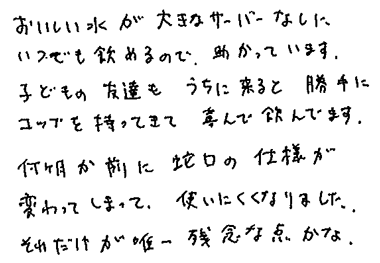 おいしい水が大きなサーバーなしに
いつでも飲めるので、助かっています。
子どもの友達もうちに来ると勝手に
コップを持ってきて喜んで飲んでます。
何ヶ月か前に蛇口の仕様が
変わってしまって、使いにくくなりました。
それだけが唯一残念な点かな。